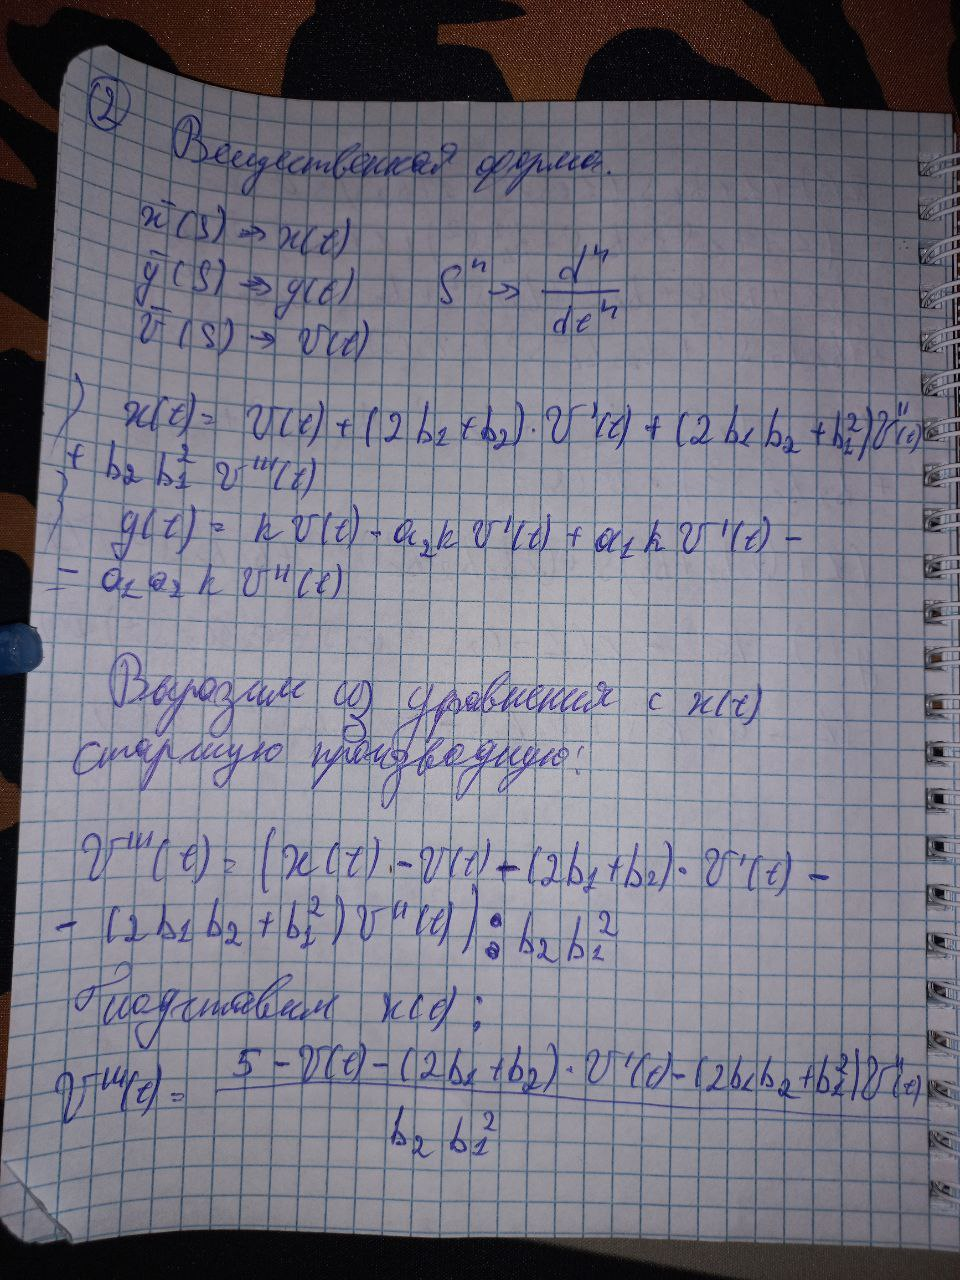 2
Вещественная форма.
x̄(s) → x(t)
ȳ(s) → y(t) sⁿ → dⁿ/dtⁿ
v̄(s) → v(t)
x(t) = v(t) + (2b₁ + b₂)·v'(t) + (2b₁b₂ + b₁²)v''(t)
+ b₂b₁² v'''(t)
y(t) = k v(t) - a₂k v'(t) + a₁k v'(t) -
- a₁a₂k v''(t)
Выразим из уравнения с x(t)
старшую производную:
v'''(t) = (x(t) - v(t) - (2b₁ + b₂)·v'(t) -
- (2b₁b₂ + b₁²)v''(t)) : b₂b₁²
Подставим x(t):
v'''(t) = (5 - v(t) - (2b₁ + b₂)·v'(t) - (2b₁b₂ + b₁²)v''(t))
/ b₂b₁²